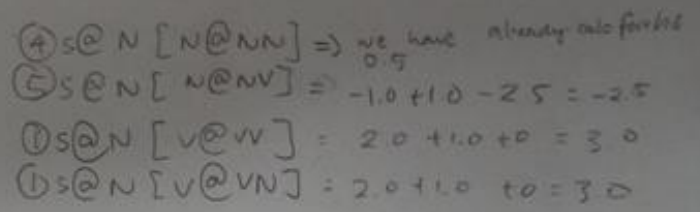 ④ S@N [N@NN] => we have already calc for this 0.5
⑤ S@N [N@NV] = -1.0 +1.0 -2.5 = -2.5
① S@N [V@VV] = 2.0 +1.0 +0 = 3.0
① S@N [V@VN] = 2.0 +1.0 +0 = 3.0